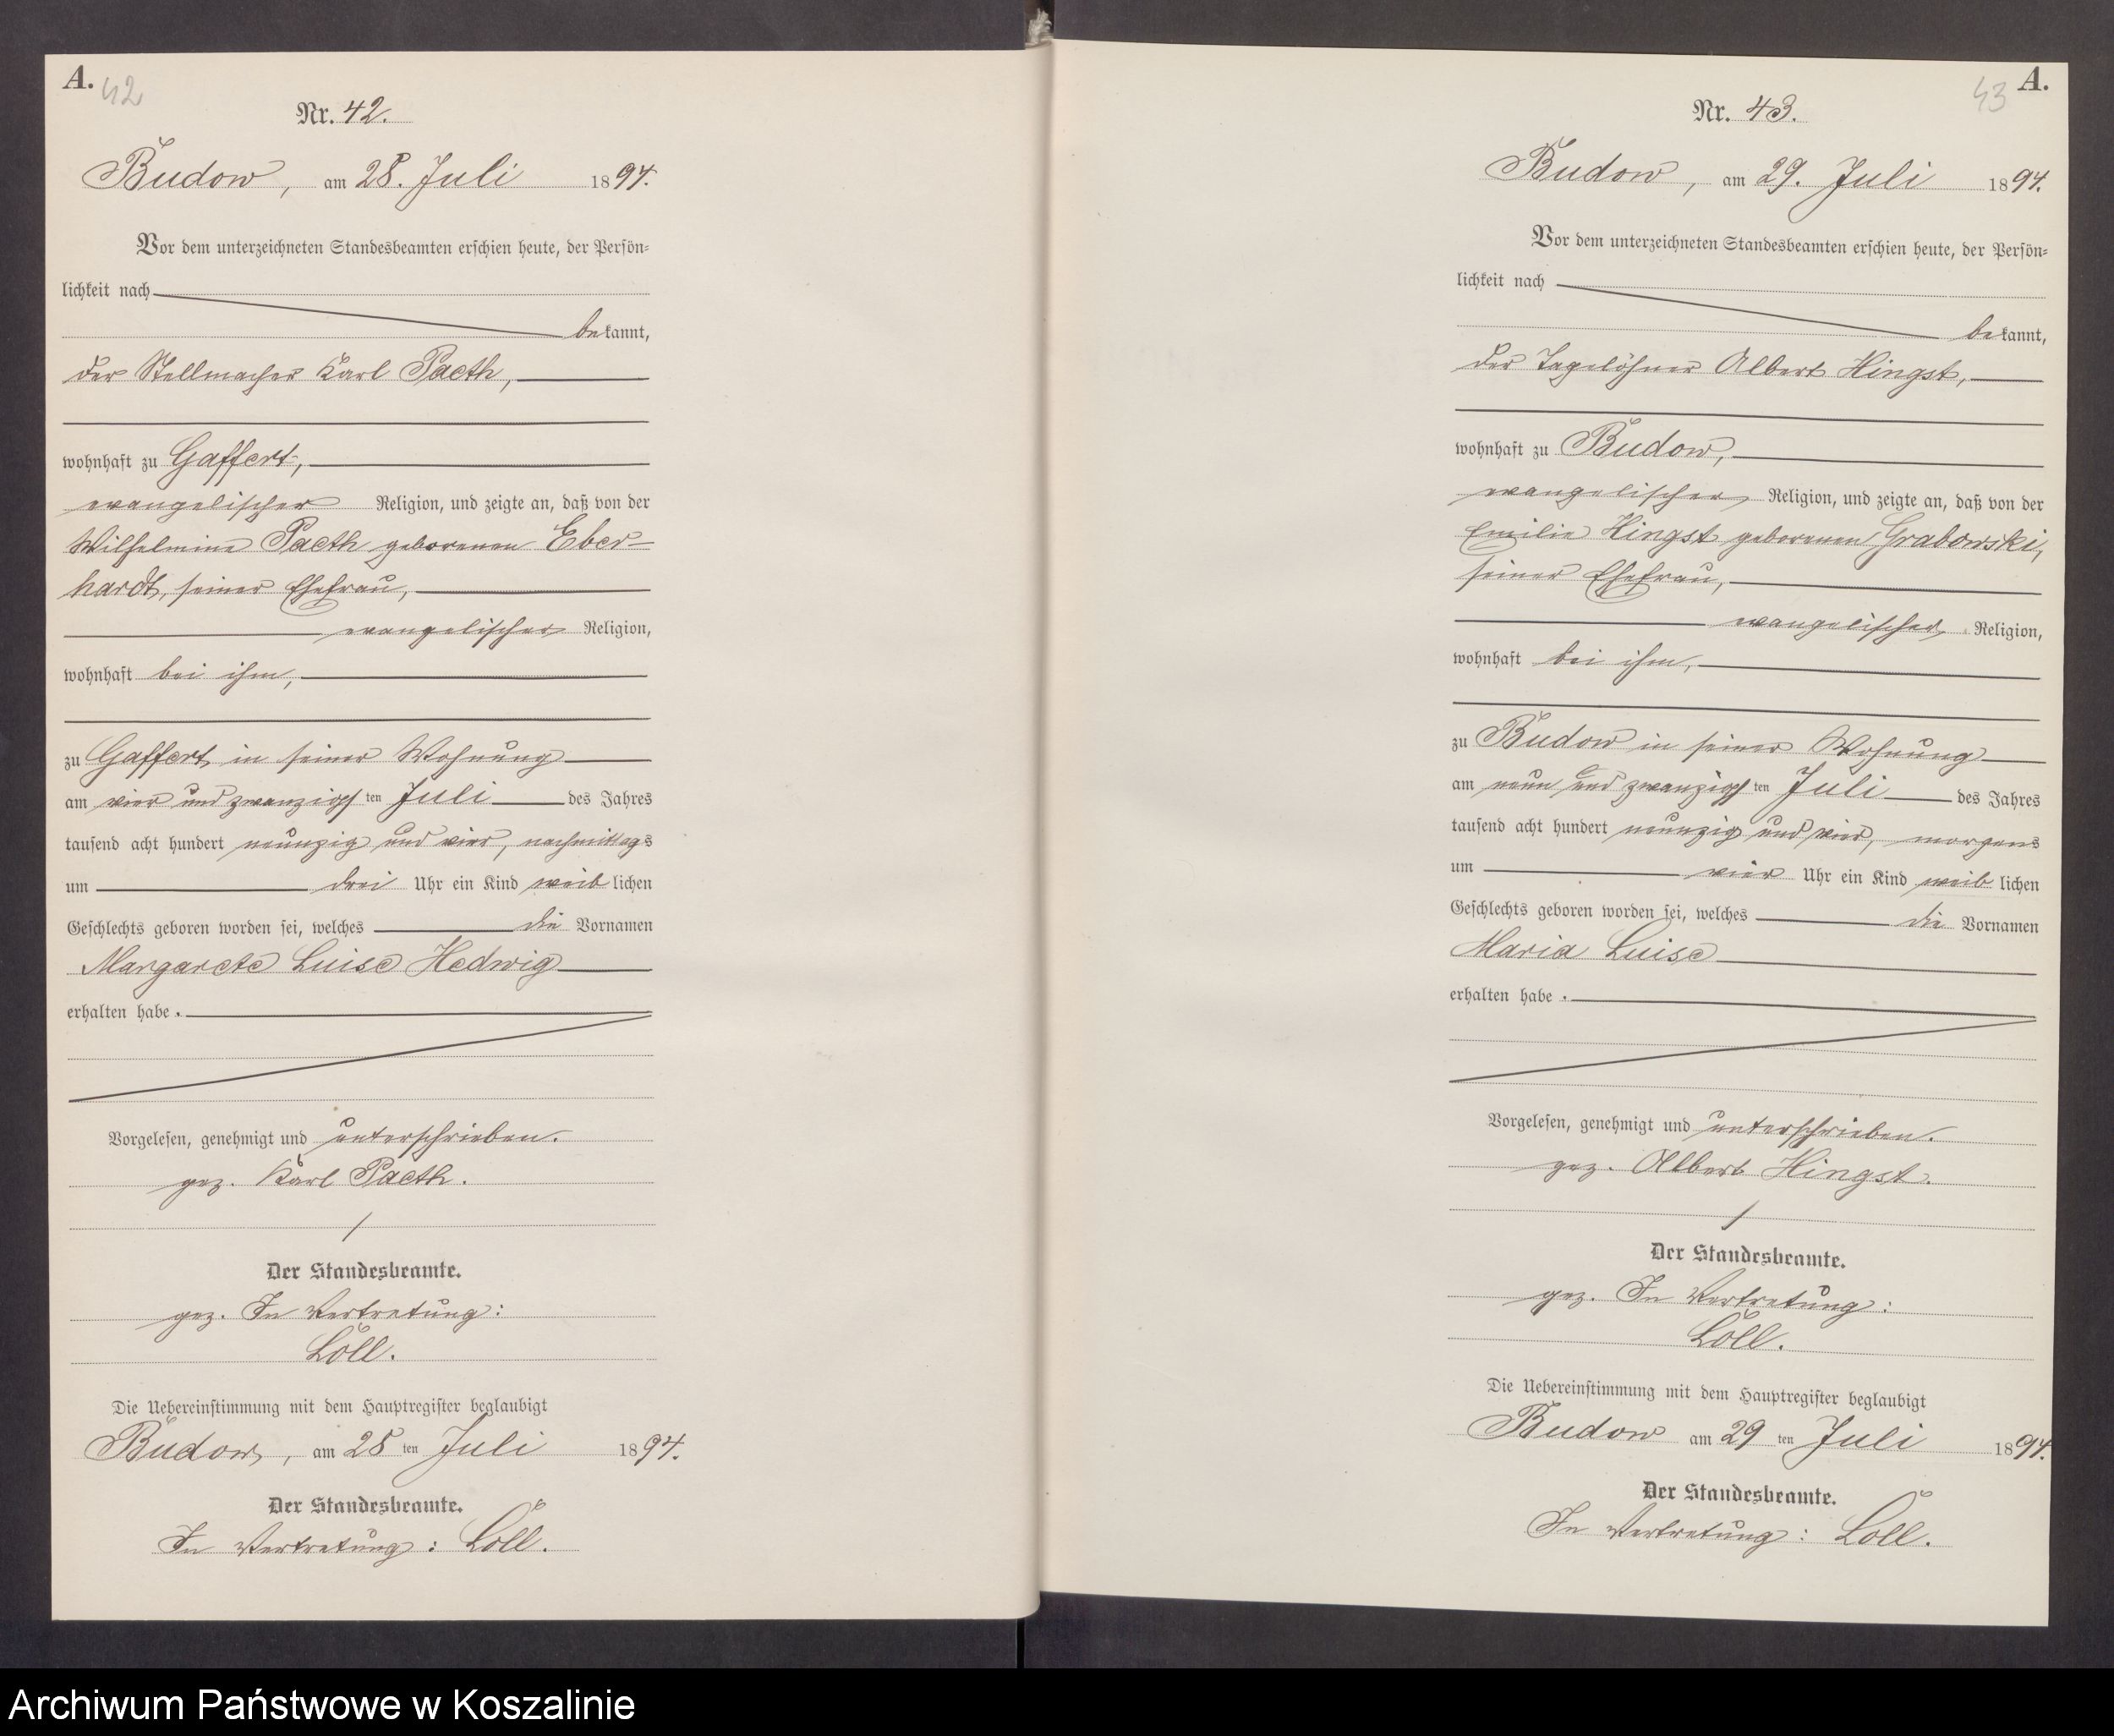 A.
42
Nr. 42.
Budow, am 28. Juli 1894.
Vor dem unterzeichneten Standesbeamten erschien heute, der Persön-
lichkeit nach
bekannt,
der Stellmacher Karl Paeth,
wohnhaft zu Gaffert,
evangelischer Religion, und zeigte an, daß von der
Wilhelmine Paeth geborenen Eber-
hardt, seiner Ehefrau,
evangelischer Religion,
wohnhaft bei ihm,
zu Gaffert in seiner Wohnung
am vier und zwanzigsten Juli des Jahres
tausend acht hundert neunzig und vier, nachmittags
um drei Uhr ein Kind weiblichen
Geschlechts geboren worden sei, welches die Vornamen
Margarete Luise Hedwig
erhalten habe.
Vorgelesen, genehmigt und unterschrieben.
gez. Karl Paeth.
Der Standesbeamte.
gez. In Vertretung:
Löll.
Die Uebereinstimmung mit dem Hauptregister beglaubigt
Budow, am 28 ten Juli 1894.
Der Standesbeamte.
In Vertretung: Löll.
A.
43
Nr. 43.
Budow, am 29. Juli 1894.
Vor dem unterzeichneten Standesbeamten erschien heute, der Persön-
lichkeit nach
bekannt,
der Tagelöhner Albert Hingst,
wohnhaft zu Budow,
evangelischer Religion, und zeigte an, daß von der
Emilie Hingst geborenen Grabowski,
seiner Ehefrau,
evangelischer Religion,
wohnhaft bei ihm,
zu Budow in seiner Wohnung
am neun und zwanzigsten Juli des Jahres
tausend acht hundert neunzig und vier, morgens
um vier Uhr ein Kind weiblichen
Geschlechts geboren worden sei, welches die Vornamen
Maria Luise
erhalten habe.
Vorgelesen, genehmigt und unterschrieben.
gez. Albert Hingst.
Der Standesbeamte.
gez. In Vertretung:
Löll.
Die Uebereinstimmung mit dem Hauptregister beglaubigt
Budow am 29 ten Juli 1894.
Der Standesbeamte.
In Vertretung: Löll.
Archiwum Państwowe w Koszalinie